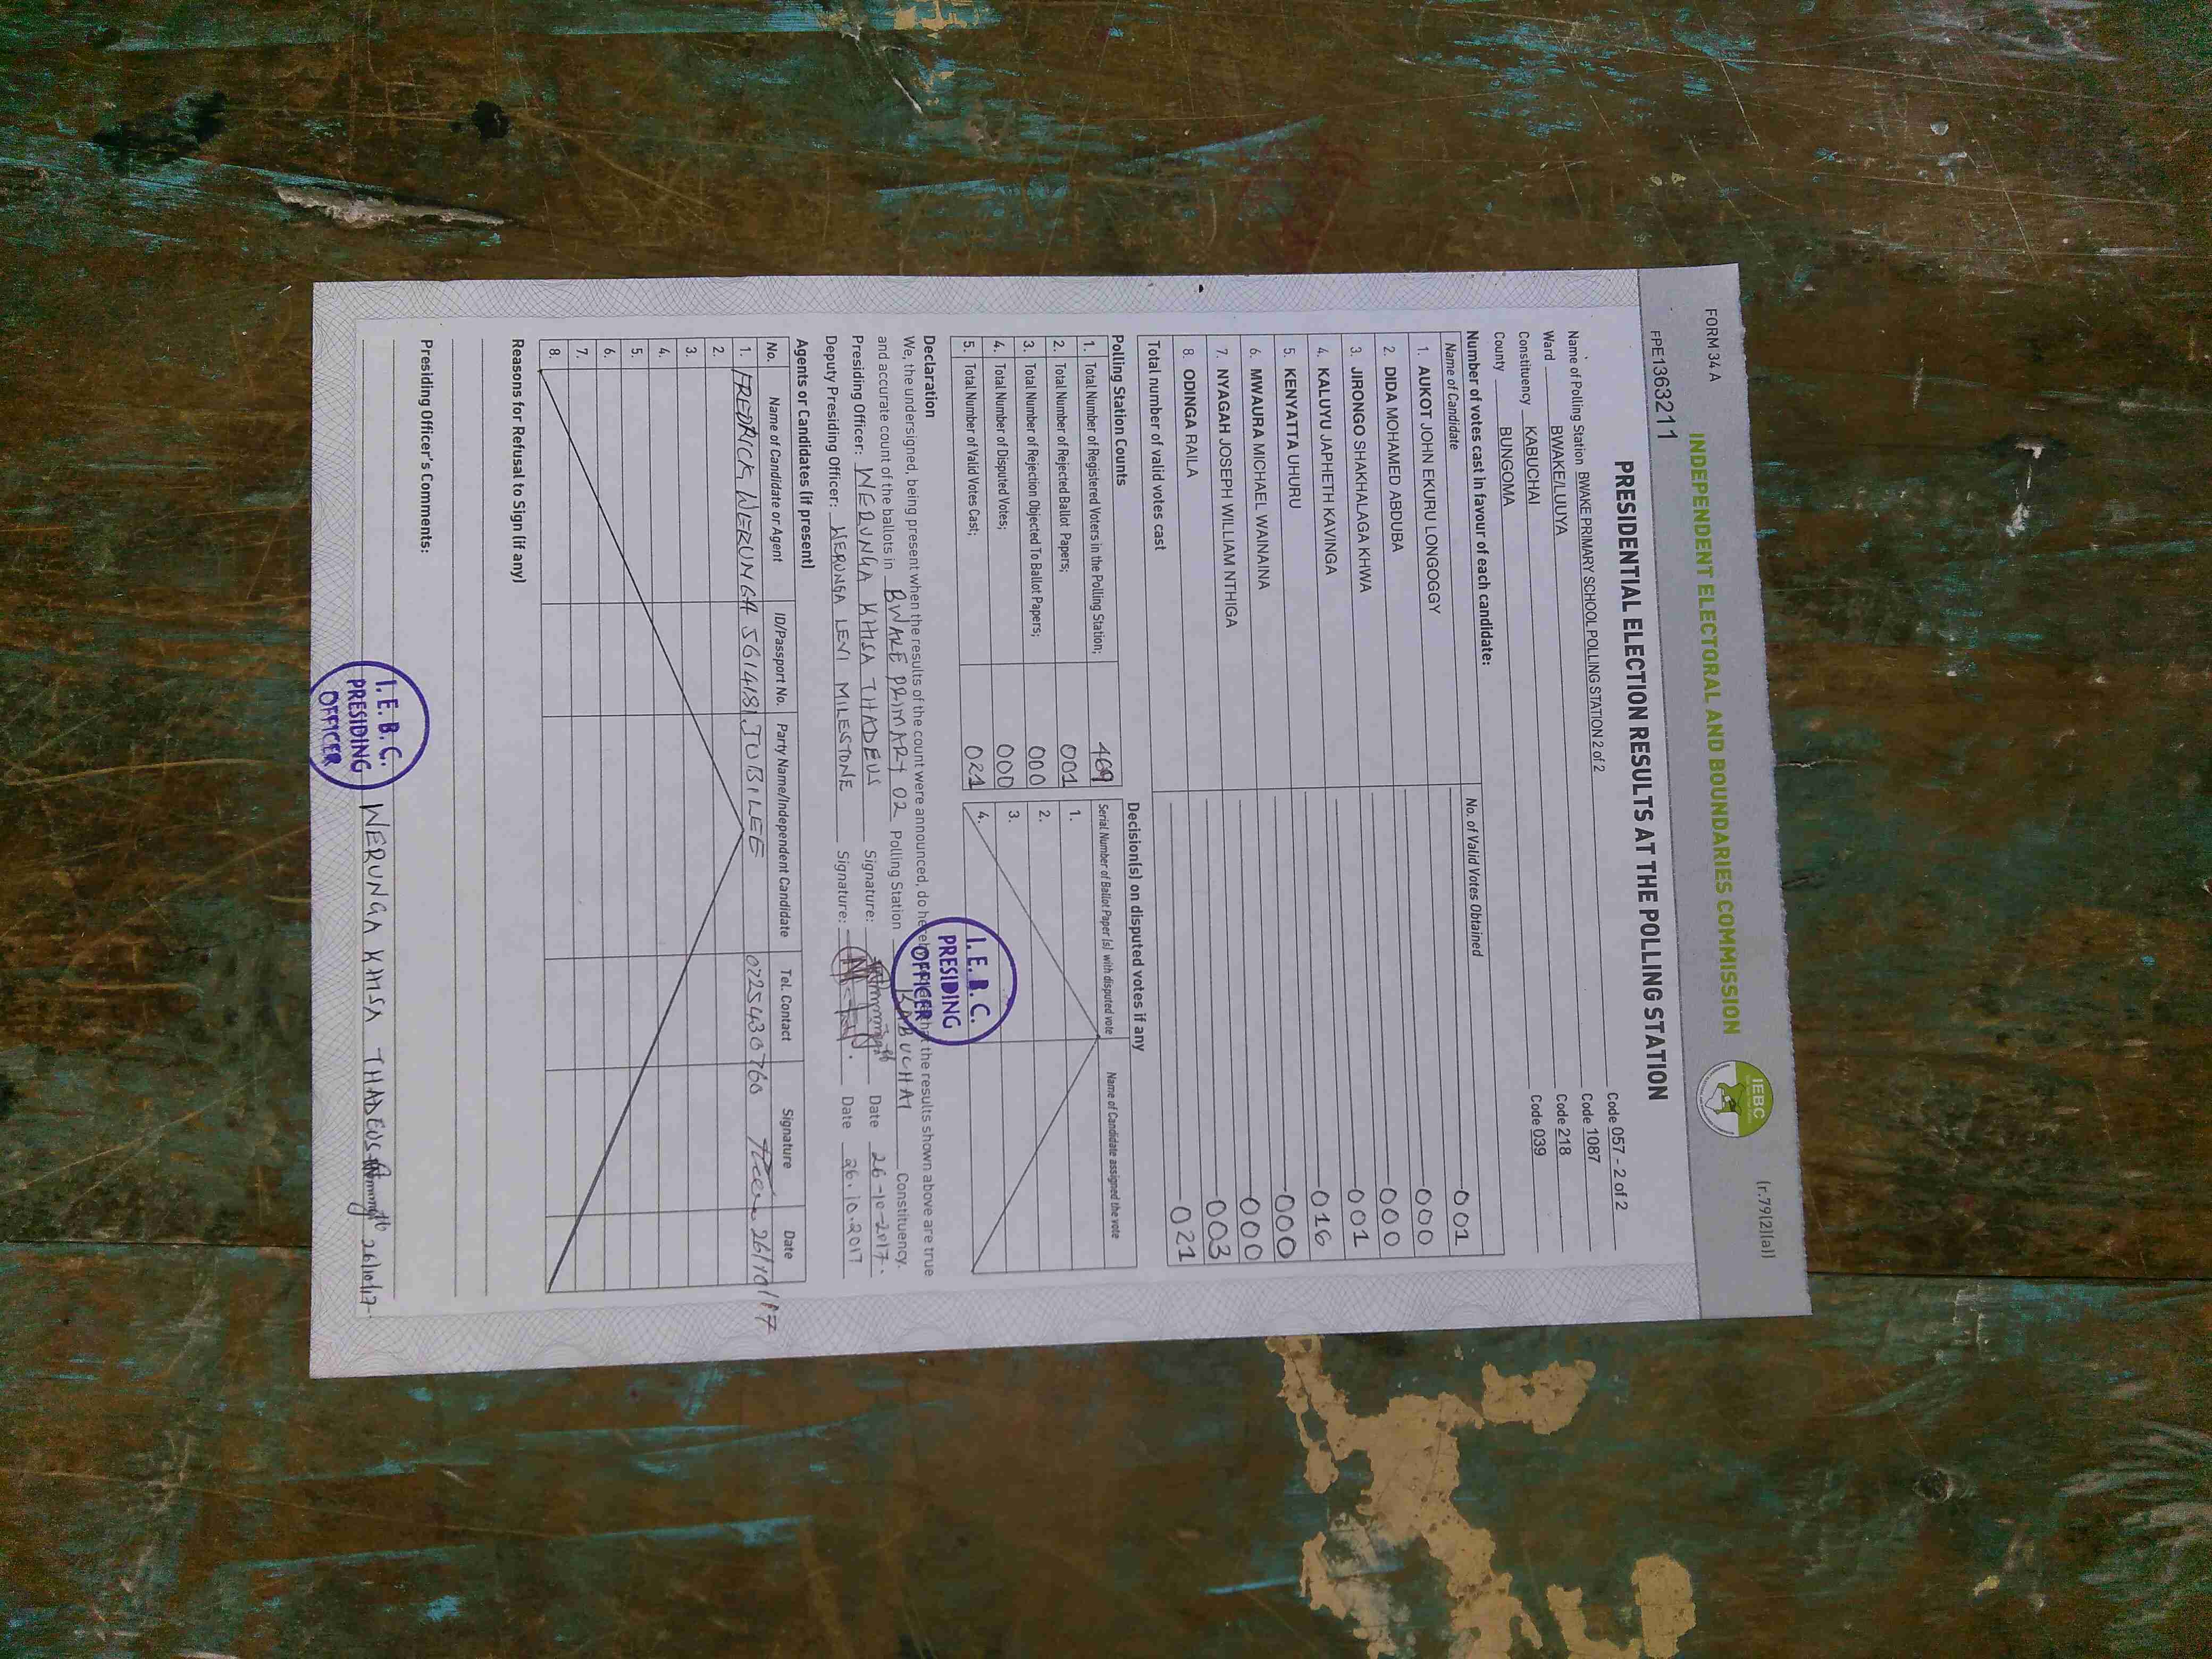 FORM 34 A
(r.79(2)(a))
INDEPENDENT ELECTORAL AND BOUNDARIES COMMISSION
IEBC
FPE1363211
PRESIDENTIAL ELECTION RESULTS AT THE POLLING STATION
Name of Polling Station BWAKE PRIMARY SCHOOL POLLING STATION 2 of 2 Code 057 - 2 of 2
Ward BWAKE/LUUYA Code 1087
Constituency KABUCHAI Code 218
County BUNGOMA Code 039
Number of votes cast in favour of each candidate:
Name of Candidate No. of Valid Votes Obtained
1. AUKOT JOHN EKURU LONGOGGY 001
2. DIDA MOHAMED ABDUBA 000
3. JIRONGO SHAKHALAGA KHWA 000
4. KALUYU JAPHETH KAVINGA 001
5. KENYATTA UHURU 016
6. MWAURA MICHAEL WAINAINA 000
7. NYAGAH JOSEPH WILLIAM NTHIGA 000
8. ODINGA RAILA 003
Total number of valid votes cast 021
Polling Station Counts
1. Total Number of Registered Voters in the Polling Station; 469
2. Total Number of Rejected Ballot Papers; 001
3. Total Number of Rejection Objected To Ballot Papers; 000
4. Total Number of Disputed Votes; 000
5. Total Number of Valid Votes Cast; 021
Decision(s) on disputed votes if any
Serial Number of Ballot Paper (s) with disputed vote Name of Candidate assigned the vote
1.
2.
3.
4.
I.E.B.C.
PRESIDING
OFFICER
Declaration
We, the undersigned, being present when the results of the count were announced, do hereby declare that the results shown above are true
and accurate count of the ballots in BWAKE PRIMARY 02 Polling Station KABUCHAI Constituency.
Presiding Officer: WERUNGA KHISA THADEUS Signature: Date 26-10-2017.
Deputy Presiding Officer: WERUNGA LEVI MILESTONE Signature: Date 26.10.2017
Agents or Candidates (if present)
No. Name of Candidate or Agent ID/Passport No. Party Name/Independent Candidate Tel. Contact Signature Date
1. FREDRICK WERUNGA 5614181 JUBILEE 0725430760 26/10/17
2.
3.
4.
5.
6.
7.
8.
Reasons for Refusal to Sign (if any)
Presiding Officer's Comments:
I.E.B.C.
PRESIDING
OFFICER
WERUNGA KHISA THADEUS 26/10/17